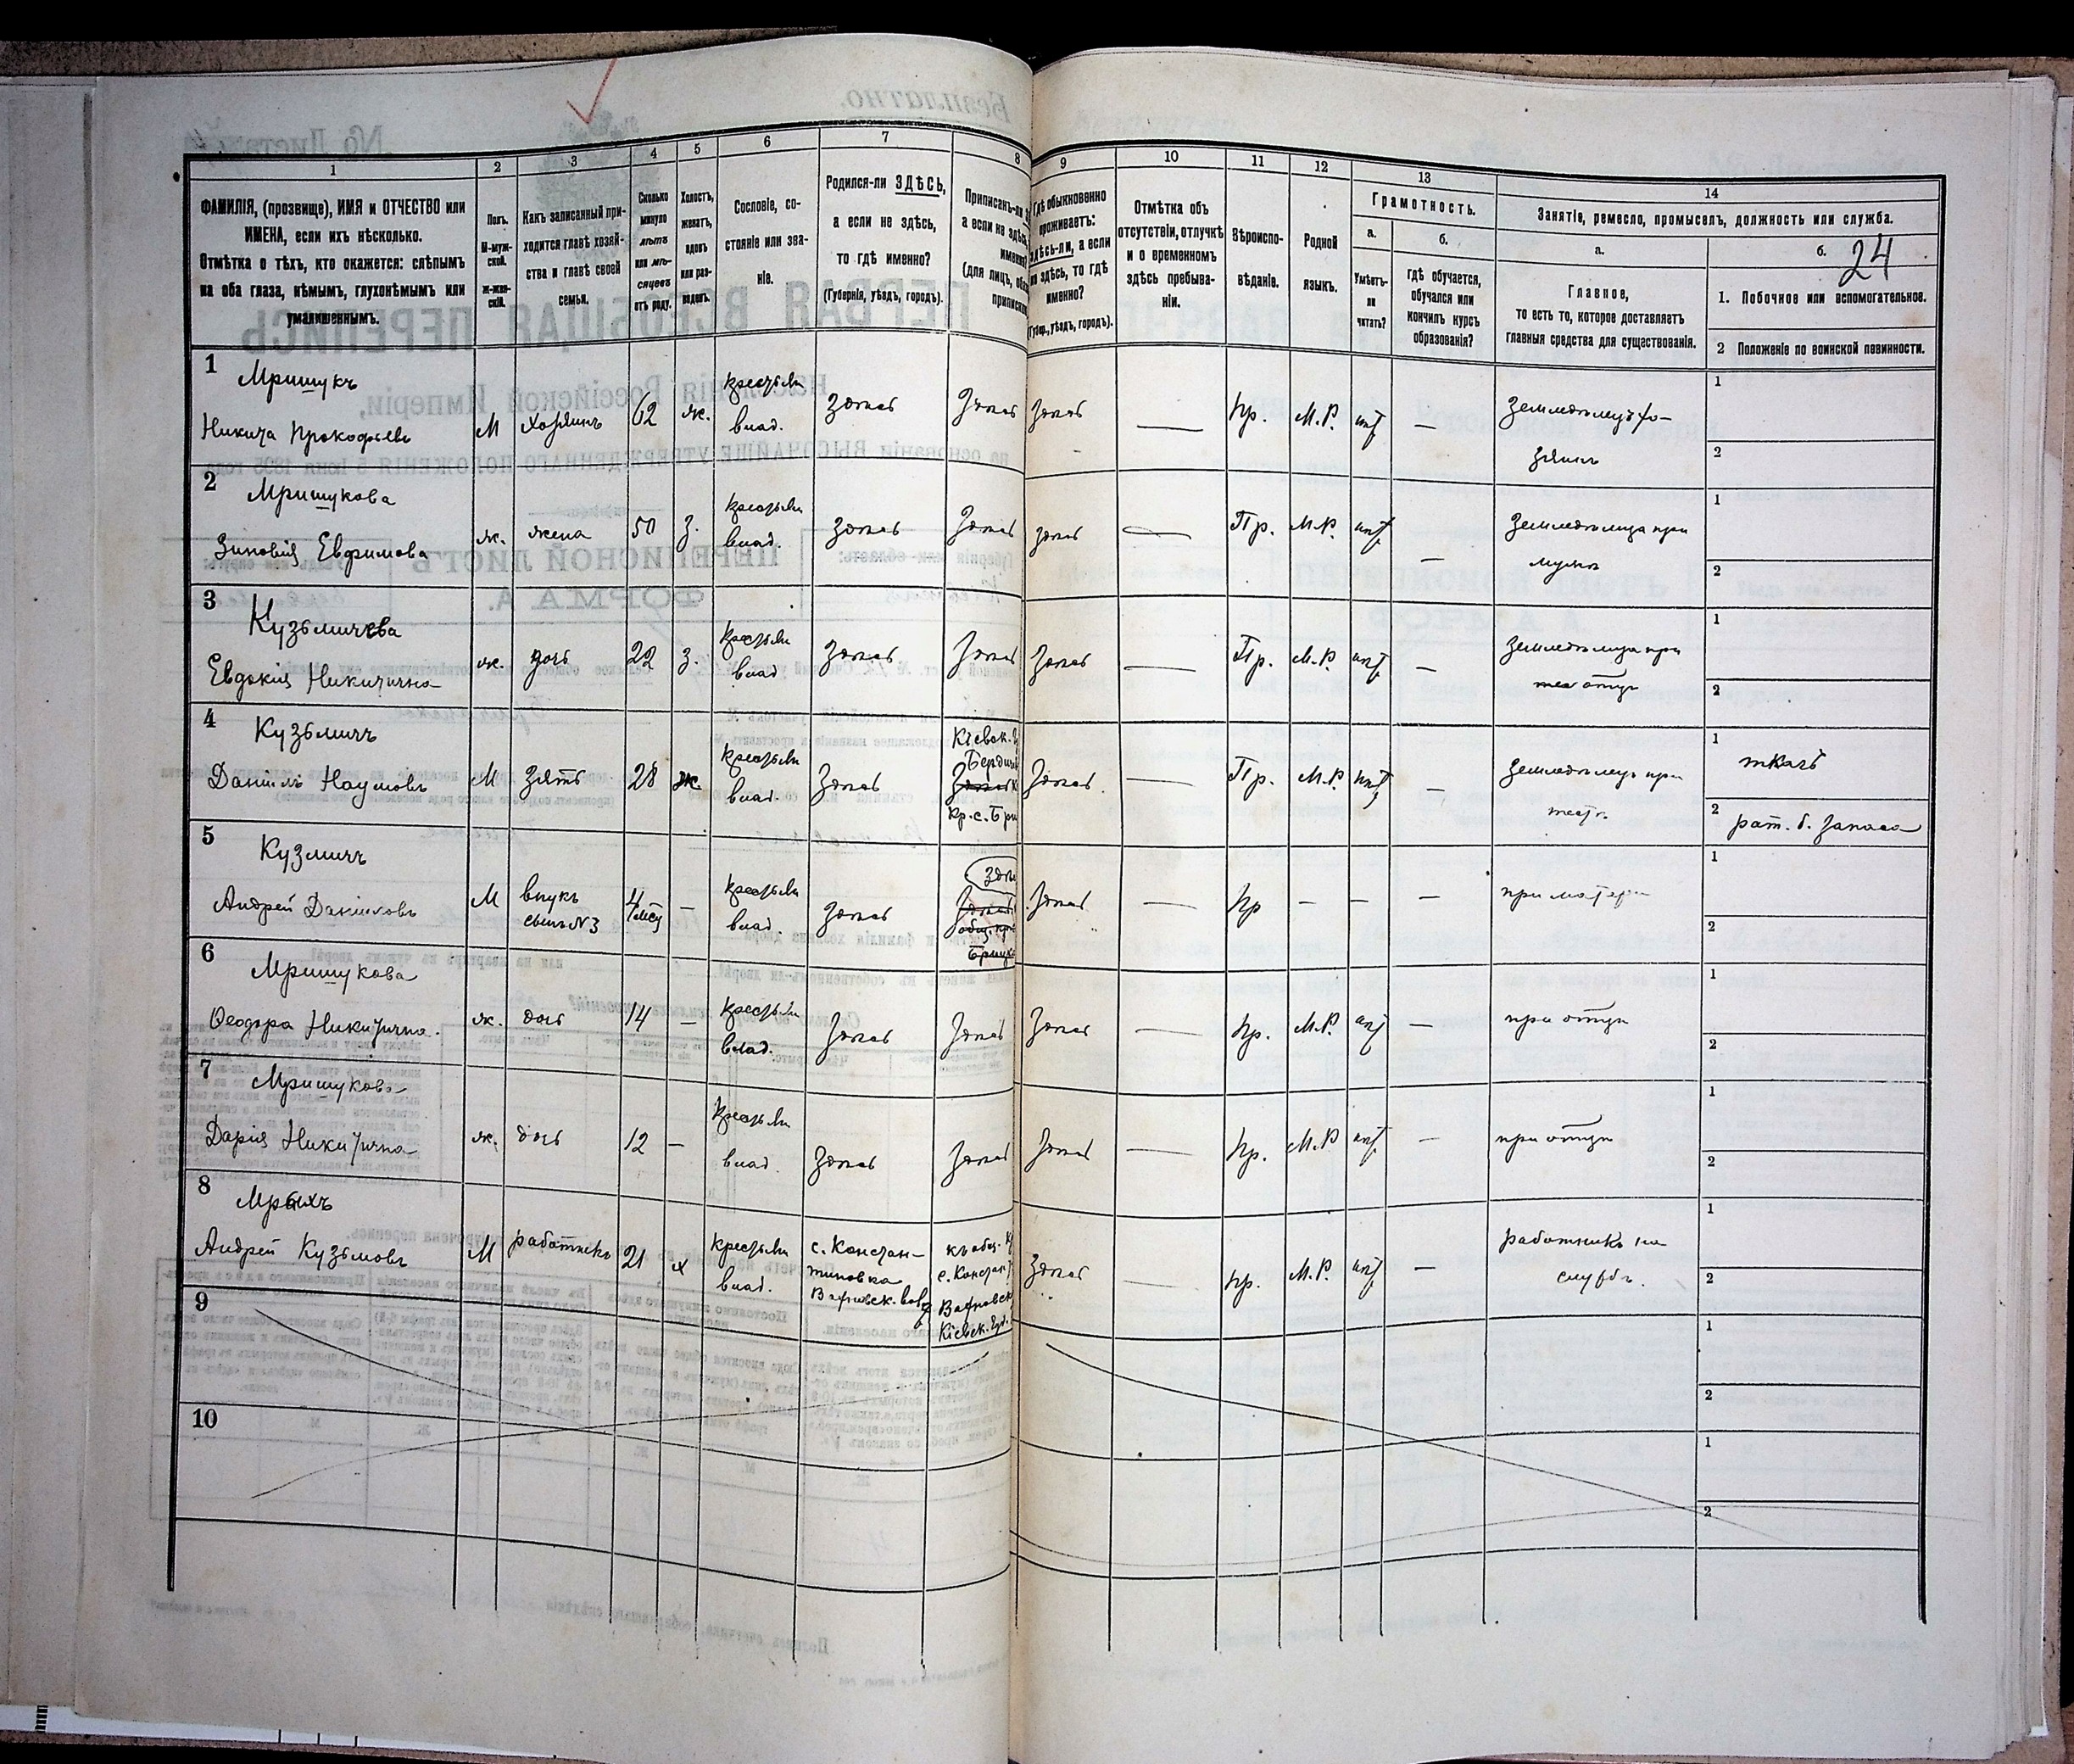 24
1
2
3
4
5
6
7
8
9
10
11
12
13
14
ФАМИЛІЯ, (прозвище), ИМЯ и ОТЧЕСТВО или
ИМЕНА, если ихъ нѣсколько.
Отмѣтка о тѣхъ, кто окажется: слѣпымъ
на оба глаза, нѣмымъ, глухонѣмымъ или
умалишеннымъ.
Полъ.
М-муж-
ской.
Ж-жен-
скій.
Какъ записанный при-
ходится главѣ хозяй-
ства и главѣ своей
семьи.
Сколько
минуло
лѣтъ
или мѣ-
сяцевъ
отъ роду.
Холостъ,
женатъ,
вдовъ
или раз-
веденъ.
Сословіе, со-
стояніе или зва-
ніе.
Родился-ли ЗДѢСЬ,
а если не здѣсь,
то гдѣ именно?
(Губернія, уѣздъ, городъ).
Приписанъ-ли
а если не здѣсь
(для лицъ,
Гдѣ обыкновенно
проживаетъ:
здѣсь-ли, а если
не здѣсь, то гдѣ
именно?
(Губер., уѣздъ, городъ).
Отмѣтка объ
отсутствіи, отлучкѣ
и о временномъ
здѣсь пребыва-
ніи.
Вѣроиспо-
вѣданіе.
Родной
языкъ.
Грамотность.
а.
Умѣетъ-
ли
читать?
б.
гдѣ обучается,
обучался или
кончилъ курсъ
образованія?
Занятіе, ремесло, промыселъ, должность или служба.
а.
Главное,
то есть то, которое доставляетъ
главныя средства для существованія.
б.
1. Побочное или вспомогательное.
2 Положеніе по воинской повинности.
1 Мришукъ
Никита Прокофьевъ М хозяинъ 62 ж. крестьян влад. здѣсь здѣсь здѣсь — Пр. М.Р. нѣт — Земледѣлецъ хо-
зяинъ
1
2
2 Мришукова
Зиновія Евфимова ж. жена 50 з. крестьян влад. здѣсь здѣсь здѣсь — Пр. М.Р. нѣт — Земледѣлица при
мужѣ
1
2
3 Кузьмичева
Евдокія Никитична ж. дочь 22 з. крестьян влад здѣсь здѣсь здѣсь — Пр. М.Р. нѣт — Земледѣлица при
отцѣ
1
2
4 Кузьмичъ
Даніилъ Наумовъ М зять 28 ж крестьян влад. здѣсь Кіевск. Бердич здѣсь кр. с. здѣсь — Пр. М.Р. нѣт — Земледѣлецъ при
тестѣ
1 ткачъ
2 рат. б. запаса
5 Кузмичъ
Андрей Даніиловъ М внукъ
сынъ №3 4 мѣсц — крестьян влад. здѣсь здѣсь здѣсь Пр — — — при матери
1
2
6 Мришукова
Ѳеодора Никитична. ж. дочь 14 — крестьян влад. здѣсь здѣсь здѣсь — Пр. М.Р. нѣт — при отцѣ
1
2
7 Мришукова
Дарія Никитична ж. дочь 12 — крестьян влад. здѣсь здѣсь здѣсь — Пр. М.Р нѣт — при отцѣ
1
2
8 Мрыхъ
Андрей Кузьмовъ М работникъ 21 х крестьян влад. с. Констан-
тиновка къ общ.
с. Констант
Кіевск. Губ. здѣсь — Пр. М.Р. нѣт — работникъ на
службѣ.
1
2
9
1
2
10
1
2